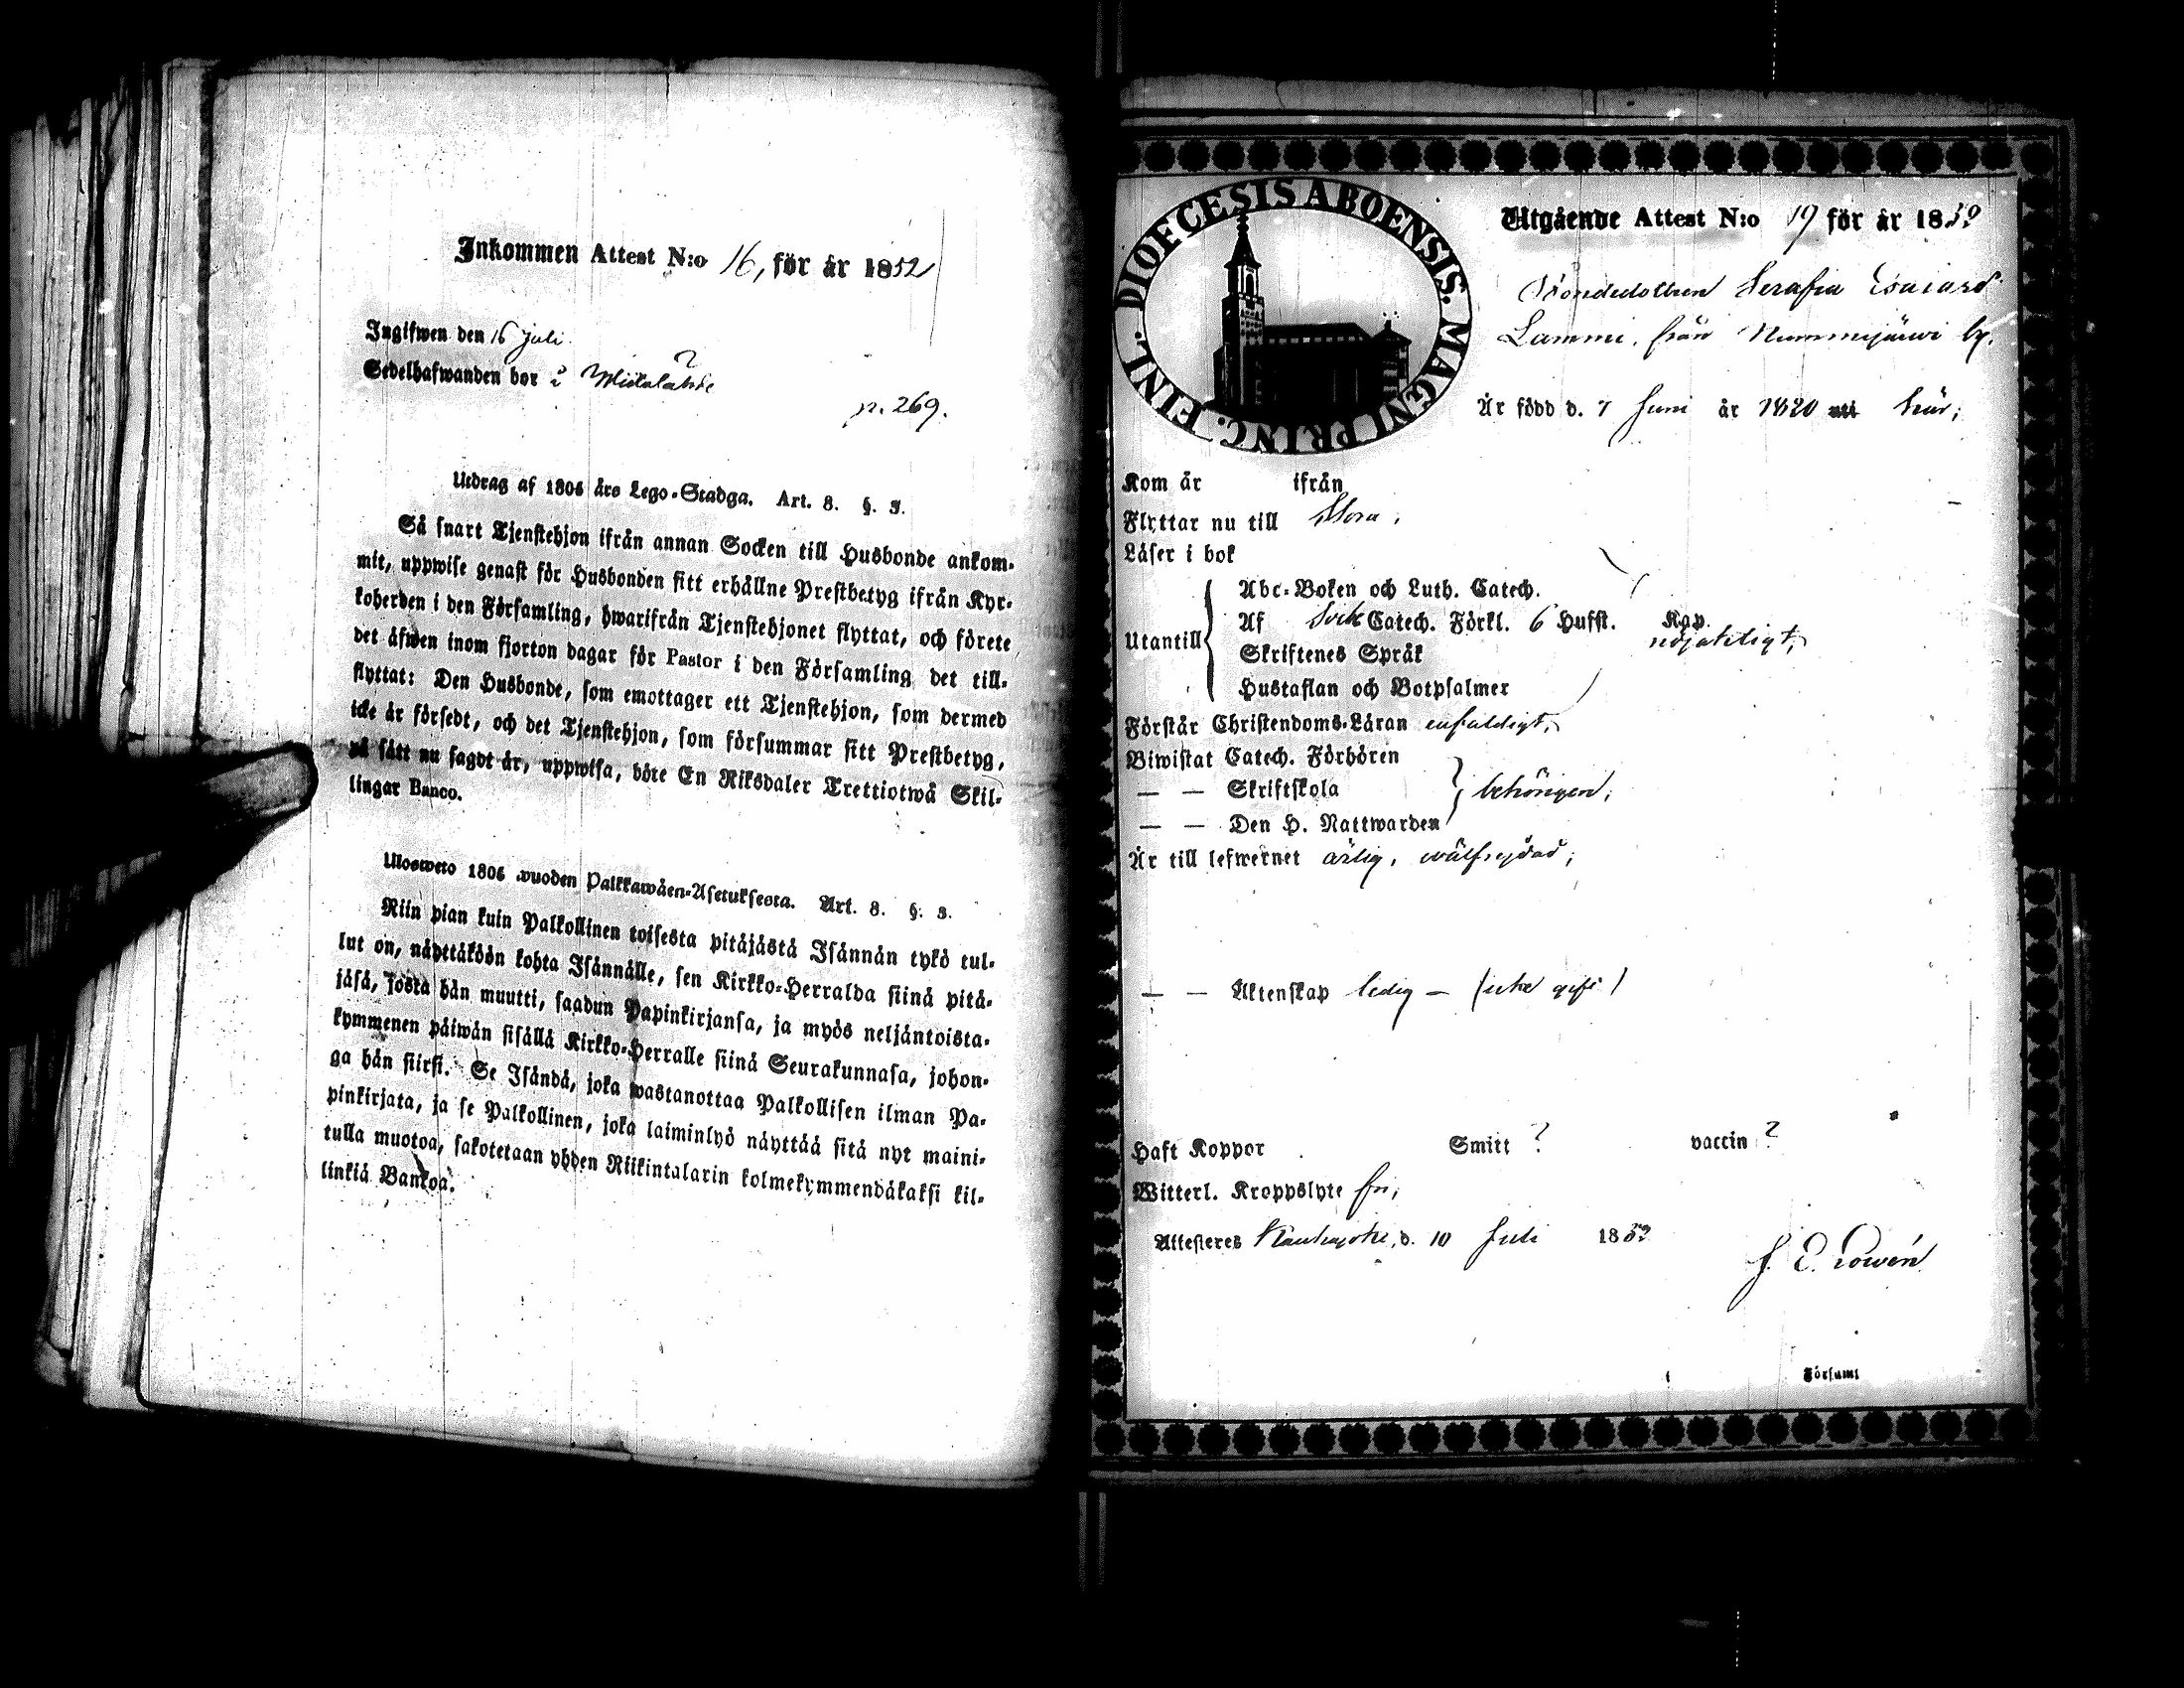 Inkommen Attest N:o 16, för år 1852
Ingifwen den 16 juli
Sedelhafwanden bor i
p. 269.
Utdrag af 1805 års Lego-Stadga. Art. 8. §. 3.
Så snart Tjenstehjon ifrån annan Socken till Husbonde ankom-
mit, uppwise genast för Husbonden sitt erhållne Prestbetyg ifrån Kyr-
koherden i den Församling, hwarifrån Tjenstehjonet flyttat, och förete
det äfwen inom fjorton dagar för Pastor i den Församling det till-
flyttat: Den Husbonde, som emottager ett Tjenstehjon, som dermed
icke är försedt, och det Tjenstehjon, som försummar sitt Prestbetyg,
på sätt nu sagdt är, uppwisa, böte En Riksdaler Trettiotwå Skil-
lingar Banco.
Ulosweto 1805 wuoden Palkkawäen-Asetuksesta. Art. 8. §. 3.
Niin pian kuin Palkollinen toisesta pitäjästä Isännän tykö tul-
lut on, näyttäköön kohta Isännälle, sen Kirkko-Herralda siinä pitä-
jäsä, josta hän muutti, saadun Papinkirjansa, ja myös neljäntoista-
kymmenen päiwän sisällä Kirkko-Herralle siinä Seurakunnasa, johon-
ga hän siirsi. Se Isändä, joka wastanottaa Palkollisen ilman Pa-
pinkirjata, ja se Palkollinen, joka laiminlyö näyttää sitä nyt maini-
tulla muotoa, sakotetaan yhden Riikintalarin kolmekymmendäkaksi kil-
linkiä Bankoa.
DIOECESIS ABOENSIS. MAGNI PRINC. FINL.
Utgående Attest N:o 19 för år 1852
Bondedottren Serafia Esaiasd
Lammi, från Nummijärwi by.
Är född d. 7 Juni år 1820 uti här;
Kom år ifrån
Flyttar nu till
Läser i bok
Utantill
Abc-Boken och Luth. Catech.
Af Catech. Förkl. 6 Hufst. Kap.
nöjaktligt,
Skriftenes Språk
Hustaflan och Botpsalmer
Förstår Christendoms-Läran enfaldigt,
Biwistat Catech. Förhören
— — Skriftskola behörigen;
— — Den H. Nattwarden
Är till lefwernet ärlig, wälfrejdad;
— — Äktenskap ledig — (icke gift)
Haft Koppor Smitt ? vaccin ?
Witterl. Kroppslyte fri;
Attesteres Kauhajoki, d. 10 Juli 1852
Försumt